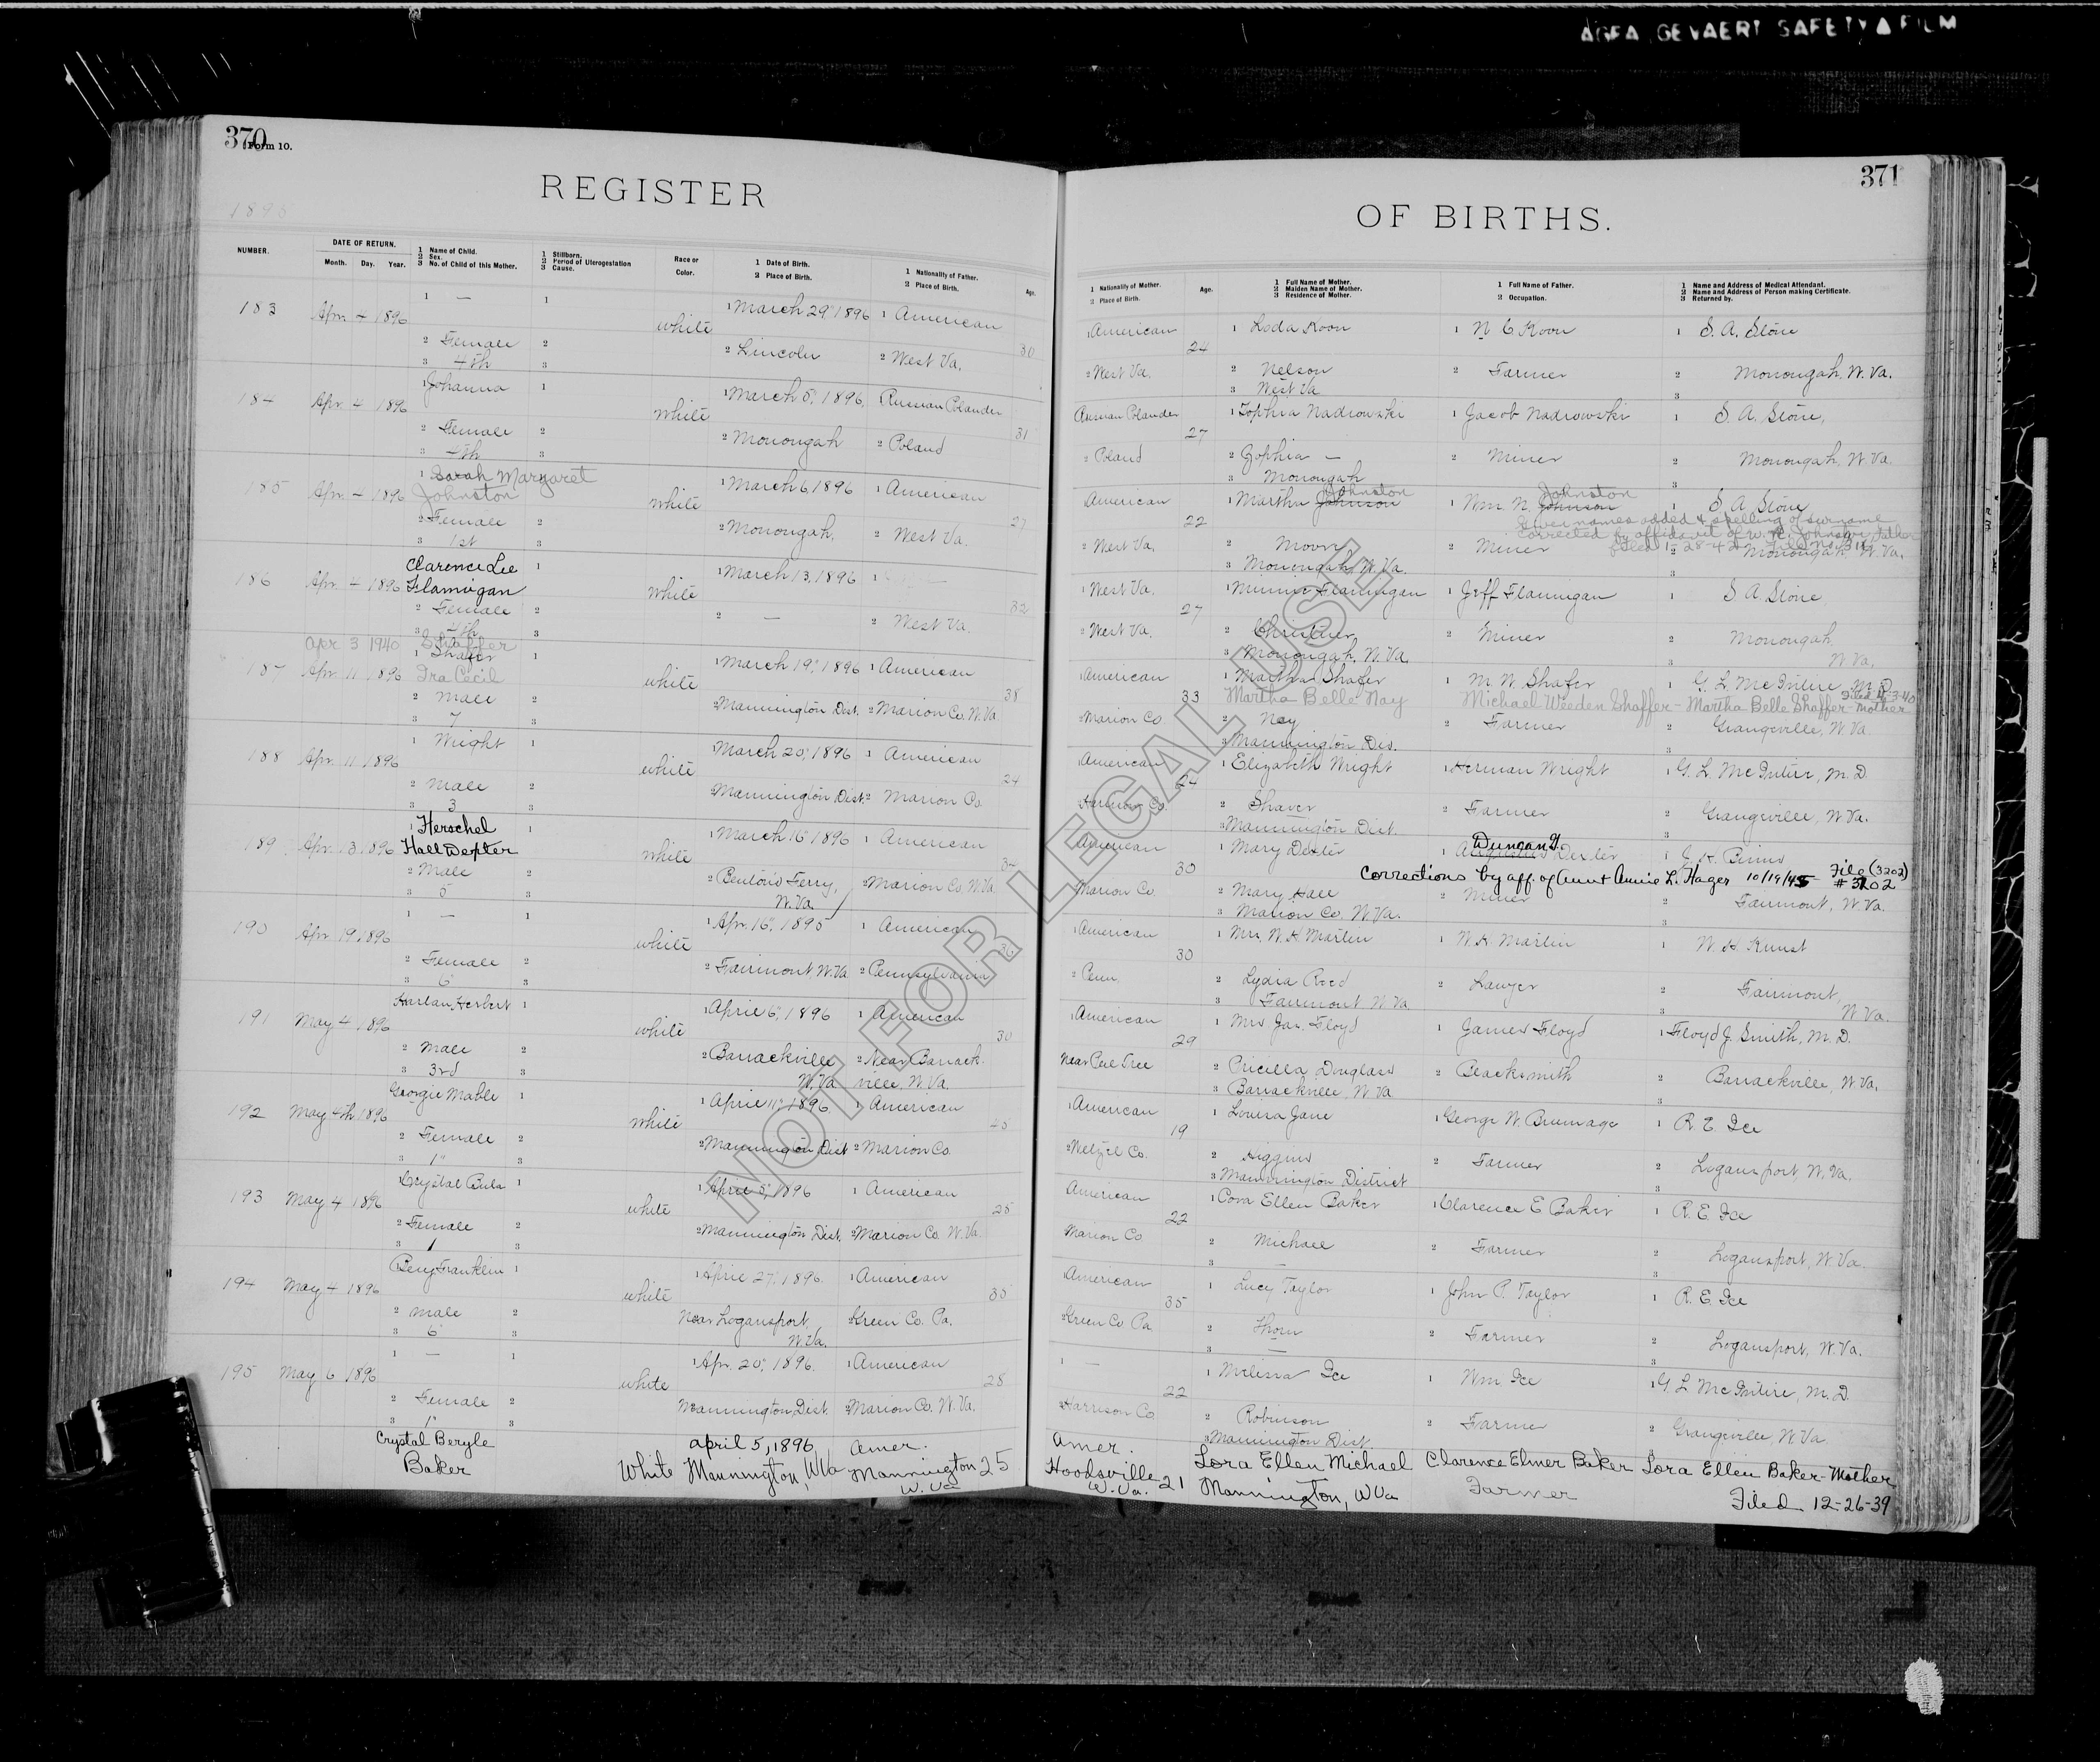 AGFA GEVAERT SAFETY FILM
370 Form 10.
371
REGISTER
OF BIRTHS.
1896
NUMBER.
DATE OF RETURN.
Month. Day. Year.
1 Name of Child.
2 Sex.
3 No. of Child of this Mother.
1 Stillborn.
2 Period of Uterogestation
3 Cause.
Race or
Color.
1 Date of Birth.
2 Place of Birth.
1 Nationality of Father.
2 Place of Birth.
Age.
1 Nationality of Mother.
2 Place of Birth.
Age.
1 Full Name of Mother.
2 Maiden Name of Mother.
3 Residence of Mother.
1 Full Name of Father.
2 Occupation.
1 Name and Address of Medical Attendant.
2 Name and Address of Person making Certificate.
3 Returned by.
183 Apr. 4 1896 1 — 1 white 1 March 29" 1896 1 American 30 1 American 24 1 Loda Koon 1 N C Koon 1 S. A. Stone
2 Female 2 2 Lincoln 2 West Va. 2 West Va. 2 Nelson 2 Farmer 2 Monongah, W. Va.
3 4th 3 3 West Va 3
184 Apr. 4 1896 1 Johanna 1 white 1 March 5", 1896, Russian Polander 31 Russian Polander 27 1 Sophia Nadrowski 1 Jacob Nadrowski 1 S. A. Stone,
2 Female 2 2 Monongah 2 Poland 2 Poland 2 Sophia — 2 Miner 2 Monongah, W. Va.
3 4th 3 3 Monongah 3
185 Apr. 4 1896 1 Sarah Margaret 1 white 1 March 6, 1896 1 American 27 American 22 1 Martha Johnson Johnston 1 Wm. N. Johnson Johnston 1 S A Stone
Johnston
Given names added & spelling of surname
corrected by affidavit of W. N. Johnston, father
Filed 1-28-42
2 Female 2 2 Monongah, 2 West Va. 2 West Va. 2 Moore 2 Miner 2 Monongah, W. Va.
3 1st 3 3 Monongah, W. Va. 3
186 Apr. 4 1896 Clarence Lee 1 white 1 March 13, 1896 1 32 1 West Va. 27 1 Minnie Flannigan 1 Jeff Flannigan 1 S A. Stone,
Flannigan
2 Female 2 2 — 2 West Va. 2 West Va. 2 Christner 2 Miner 2 Monongah,
3 4th 3 3 Monongah, W. Va. 3 W Va.
Apr 3 1940 Shaffer
187 Apr. 11 1896 1 Shafer 1 white 1 March 19", 1896 1 American 38 American 33 1 Martha Shafer 1 M. W. Shafer 1 G. L. McIntire, M. D.
Ira Cecil Martha Belle Nay Michael Weeden Shaffer - Martha Belle Shaffer - Mother Filed 4-3-40
2 Male 2 2 Mannington Dist. 2 Marion Co. W. Va. 2 Marion Co. 2 Nay 2 Farmer 2 Grangeville, W. Va.
3 7 3 3 Mannington Dis. 3
188 Apr. 11 1896 1 Wright 1 white 1 March 20", 1896 1 American 24 1 American 24 1 Elizabeth Wright 1 Herman Wright 1 G. L. McIntire, M. D.
2 Male 2 2 Mannington Dist. 2 Marion Co. Harrison Co. 2 Shaver 2 Farmer 2 Grangeville, W. Va.
3 3 3 3 Mannington Dist. 3
189 Apr. 13 1896 1 Herschel 1 white 1 March 16" 1896 1 American 34 American 30 1 Mary Dexter 1 Augustus Dexter Duncan 1
Hall Dexter
Corrections by aff. of Aunt Annie L. Hager 10/19/45 File (3202) # 3202
2 Male 2 2 Benton's Ferry, 2 Marion Co. W. Va. 2 Marion Co. 2 Mary Hall 2 Miner 2 Fairmont, W. Va.
3 5 3 W. Va. 3 Marion Co. W. Va. 3
190 Apr. 19, 1896 1 — 1 white 1 Apr. 16", 1895 1 American 36 1 American 30 1 Mrs. W. H. Martin 1 W. H. Martin 1 W. H Kunst
2 Female 2 2 Fairmont W. Va. 2 Pennsylvania 2 Penn. 2 Lydia Reed 2 Lawyer 2 Fairmont,
3 6" 3 3 Fairmont W Va 3 W Va.
191 May 4 1896 Harlan Herbert 1 white 1 April 6", 1896 1 American 30 1 American 29 1 Mrs Jas. Floyd 1 James Floyd 1 Floyd J. Smith, M. D.
2 Male 2 2 Barrackville 2 Near Barrack- Near Peel Tree 2 Pricilla Douglass 2 Blacksmith 2 Barrackville, W. Va.
3 3rd 3 W. Va ville, W. Va. 3 Barrackville, W Va 3
192 May 4th 1896 Georgie Mable 1 white 1 April 11", 1896 1 American 45 1 American 19 1 Louisa Jane 1 George W. Brumage 1 R. E. Ice
2 Female 2 2 Mannington Dist 2 Marion Co. 2 Wetzel Co. 2 Higgins 2 Farmer 2 Logansport, W. Va.
3 1" 3 3 Mannington District 3
193 May 4 1896 Crystal Bula 1 white 1 April 5", 1896 1 American 25 American 22 1 Cora Ellen Baker 1 Clarence E Baker 1 R. E. Ice
2 Female 2 2 Mannington Dist. 2 Marion Co. W. Va. Marion Co 2 Michael 2 Farmer 2 Logansport, W. Va.
3 1 3 3 — 3
194 May 4 1896 Benj Franklin 1 white 1 April 27", 1896. 1 American 35 1 American 35 1 Lucy Taylor 1 John P. Taylor 1 R. E. Ice
2 male 2 Near Logansport, 2 Green Co. Pa. 2 Green Co Pa 2 Thorn 2 Farmer 2 Logansport, W. Va.
3 6" 3 W. Va. 3 — 3
195 May 6 1896 1 — 1 white 1 Apr. 20", 1896. 1 American 28 1 — 22 1 Melissa Ice 1 Wm. Ice 1 G. L McIntire, M. D.
2 Female 2 Mannington Dist. 2 Marion Co. W. Va. 2 Harrison Co. 2 Robinson 2 Farmer 2 Grangeville, W Va.
3 1" 3 3 Mannington Dist. 3
Crystal Beryle april 5, 1896 Amer. Amer. Lora Ellen Michael Clarence Elmer Baker Lora Ellen Baker - Mother
Baker White Mannington, W Va Mannington 25 Hoodsville 21 Mannington, W Va Farmer Filed 12-26-39
W. Va. W. Va.
NOT FOR LEGAL USE